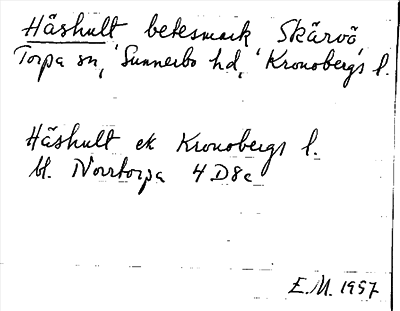 Häshult betesmark Skärvö
Torpa sn, Sunnerbo hd, Kronobergs l.
Häshult ek Kronobergs l.
bl. Norrtorpa 4D8c
E.M. 1957